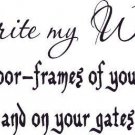 rite my W
oor-frames of you
and on your gates